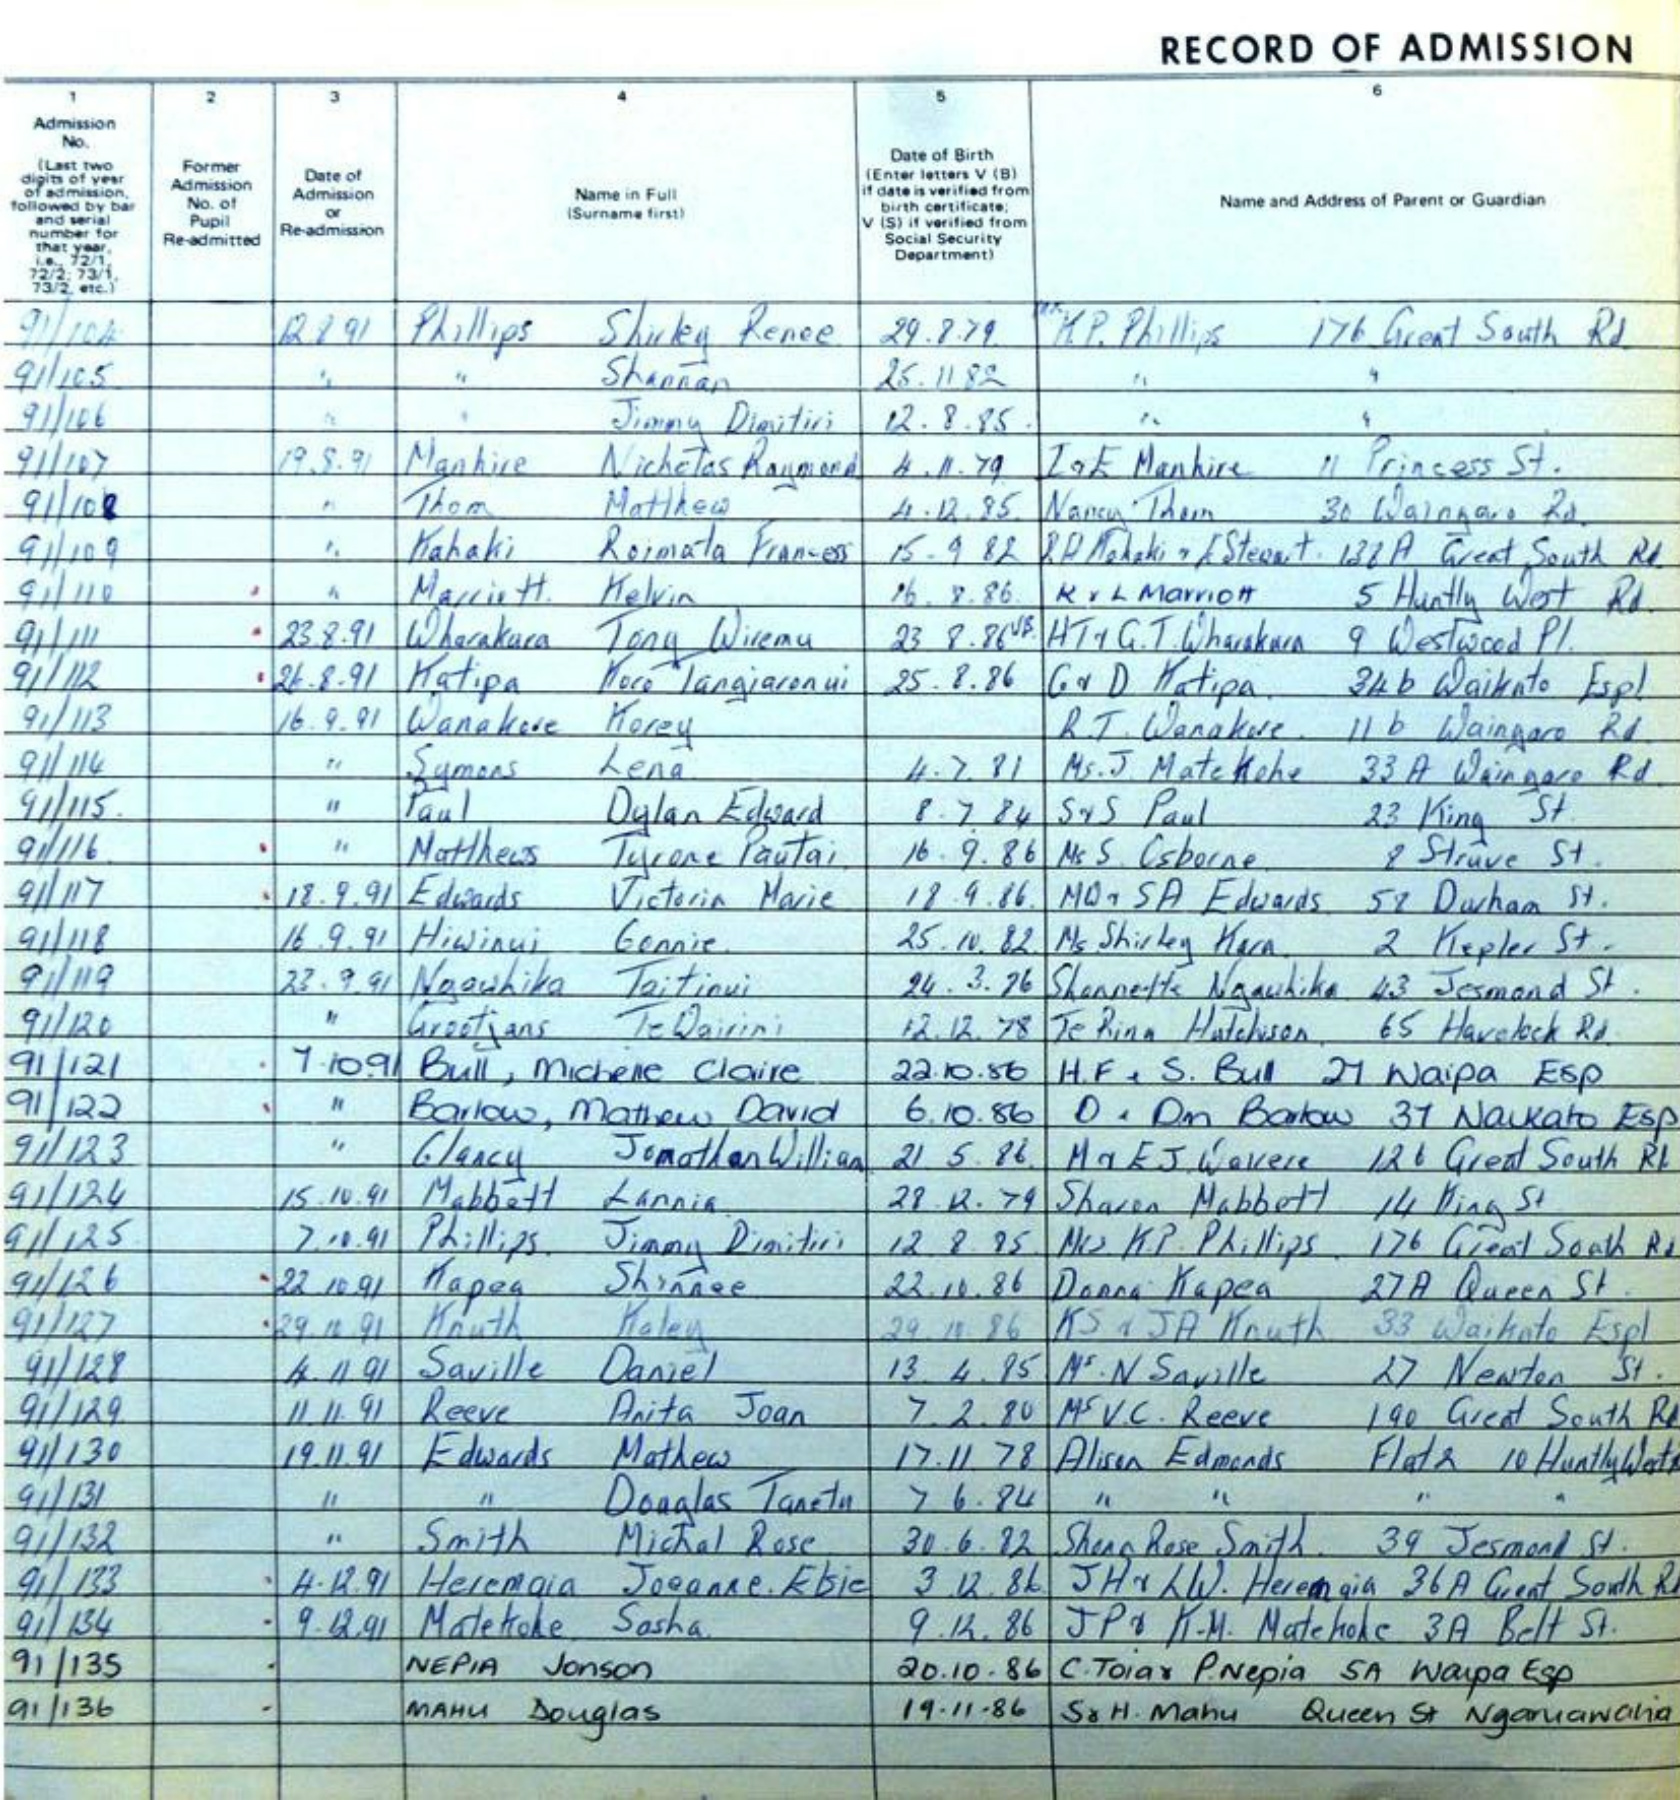 RECORD OF ADMISSION
1 2 3 4 5 6
Admission No. (Last two digits of year of admission, followed by bar and serial number for that year, i.e., 72/1, 72/2; 73/1, 73/2, etc.)
Former Admission No. of Pupil Re-admitted
Date of Admission or Re-admission
Name in Full (Surname first)
Date of Birth (Enter letters V (B) if date is verified from birth certificate; V (S) if verified from Social Security Department)
Name and Address of Parent or Guardian
91/104 12.8.91 Phillips Shirley Renee 29.8.79 K.P. Phillips 176 Great South Rd
91/105 " " Shannan 25.11.82 " "
91/106 " " Jimmy Dimitiri 12.8.85 " "
91/107 19.8.91 Manhire Nicholas Raymond 4.11.79 I & E Manhire 11 Princess St.
91/108 " Thom Matthew 4.12.85 Nancy Thom 30 Waingaro Rd.
91/109 " Kahaki Roimata Francess 15.9.82 Kahaki & Stewart 138A Great South Rd
91/110 " Marriott Kelvin 16.8.86 K & L Marriott 5 Huntly West Rd
91/111 23.8.91 Wharakura Tony Wiremu 23.8.86 VB. HT & G.T. Wharakura 9 Westwood Pl.
91/112 26.8.91 Katipa Koro Tangiaronui 25.8.86 G & D Katipa 34b Waikato Espl
91/113 16.9.91 Wanakore Korey R.T. Wanakore 11 b Waingaro Rd
91/114 " Symons Lena 4.7.81 Ms. J Matekohe 33 A Waingaro Rd
91/115. " Paul Dylan Edward 8.7.84 S & S Paul 23 King St.
91/116 " Matthews Tyrone Pautai 16.9.86 Ms S. Osborne 8 Struve St.
91/117 18.9.91 Edwards Victoria Marie 18.9.86. MD & SA Edwards 58 Durham St.
91/118 16.9.91 Hiwinui Connie 25.10.82 Ms Shirley Kara 2 Kepler St.
91/119 23.9.91 Ngawhika Taitinui 24.3. Shannette Ngawhika 43 Jesmond St.
91/120 " Grootjans Te Wairini 12.12.78 Te Rina Hutchison 65 Havelock Rd.
91/121 7.10 91 Bull, Michelle Claire 22.10.86 H.F & S. Bull 27 Waipa Esp
91/122 " Barlow, Mathew David 6.10.86 D & Dm Barlow 37 Waikato Esp
91/123 " Clancy Jonathan William 21.5.86 M & E J. 126 Great South Rd
91/124 15.10.91 Mabbett Lannia 28.12.79 Sharon Mabbett 14 King St
91/125 7.10.91 Phillips Jimmy Dimitiri 12.8.85 Mrs K.P. Phillips 176 Great South Rd
91/126 22.10.91 Kapea Shannee 22.10.86 Donna Kapea 27A Queen St
91/127 29.10.91 Knuth Kaley 29.10.86 KS & JA Knuth 33 Waikato Espl
91/128 4.11.91 Saville Daniel 13.4.85 Ms. N Saville 27 Newton St.
91/129 11.11.91 Reeve Anita Joan 7.2.80 Ms V.C. Reeve 190 Great South Rd
91/130 19.11.91 Edwards Mathew 17.11.78 Alison Edmonds Flat 2 10 Huntly West
91/131 " " Douglas Tanetu 7.6.84 " " " "
91/132 " Smith Michal Rose 30.6.82 Shona Rose Smith 39 Jesmond St.
91/133 4.12.91 Heremaia Joeanne.Elsie 3.12.86 JH & LW. Heremaia 36A Great South Rd
91/134 9.12.91 Matekohe Sasha 9.12.86 JP & K.M. Matekohe 3A Belt St.
91/135 NEPIA Jonson 20.10.86 C.Toia & P.Nepia 5A Waipa Esp
91/136 MAHU Douglas 19.11.86 S & H. Mahu Queen St Ngaruawahia